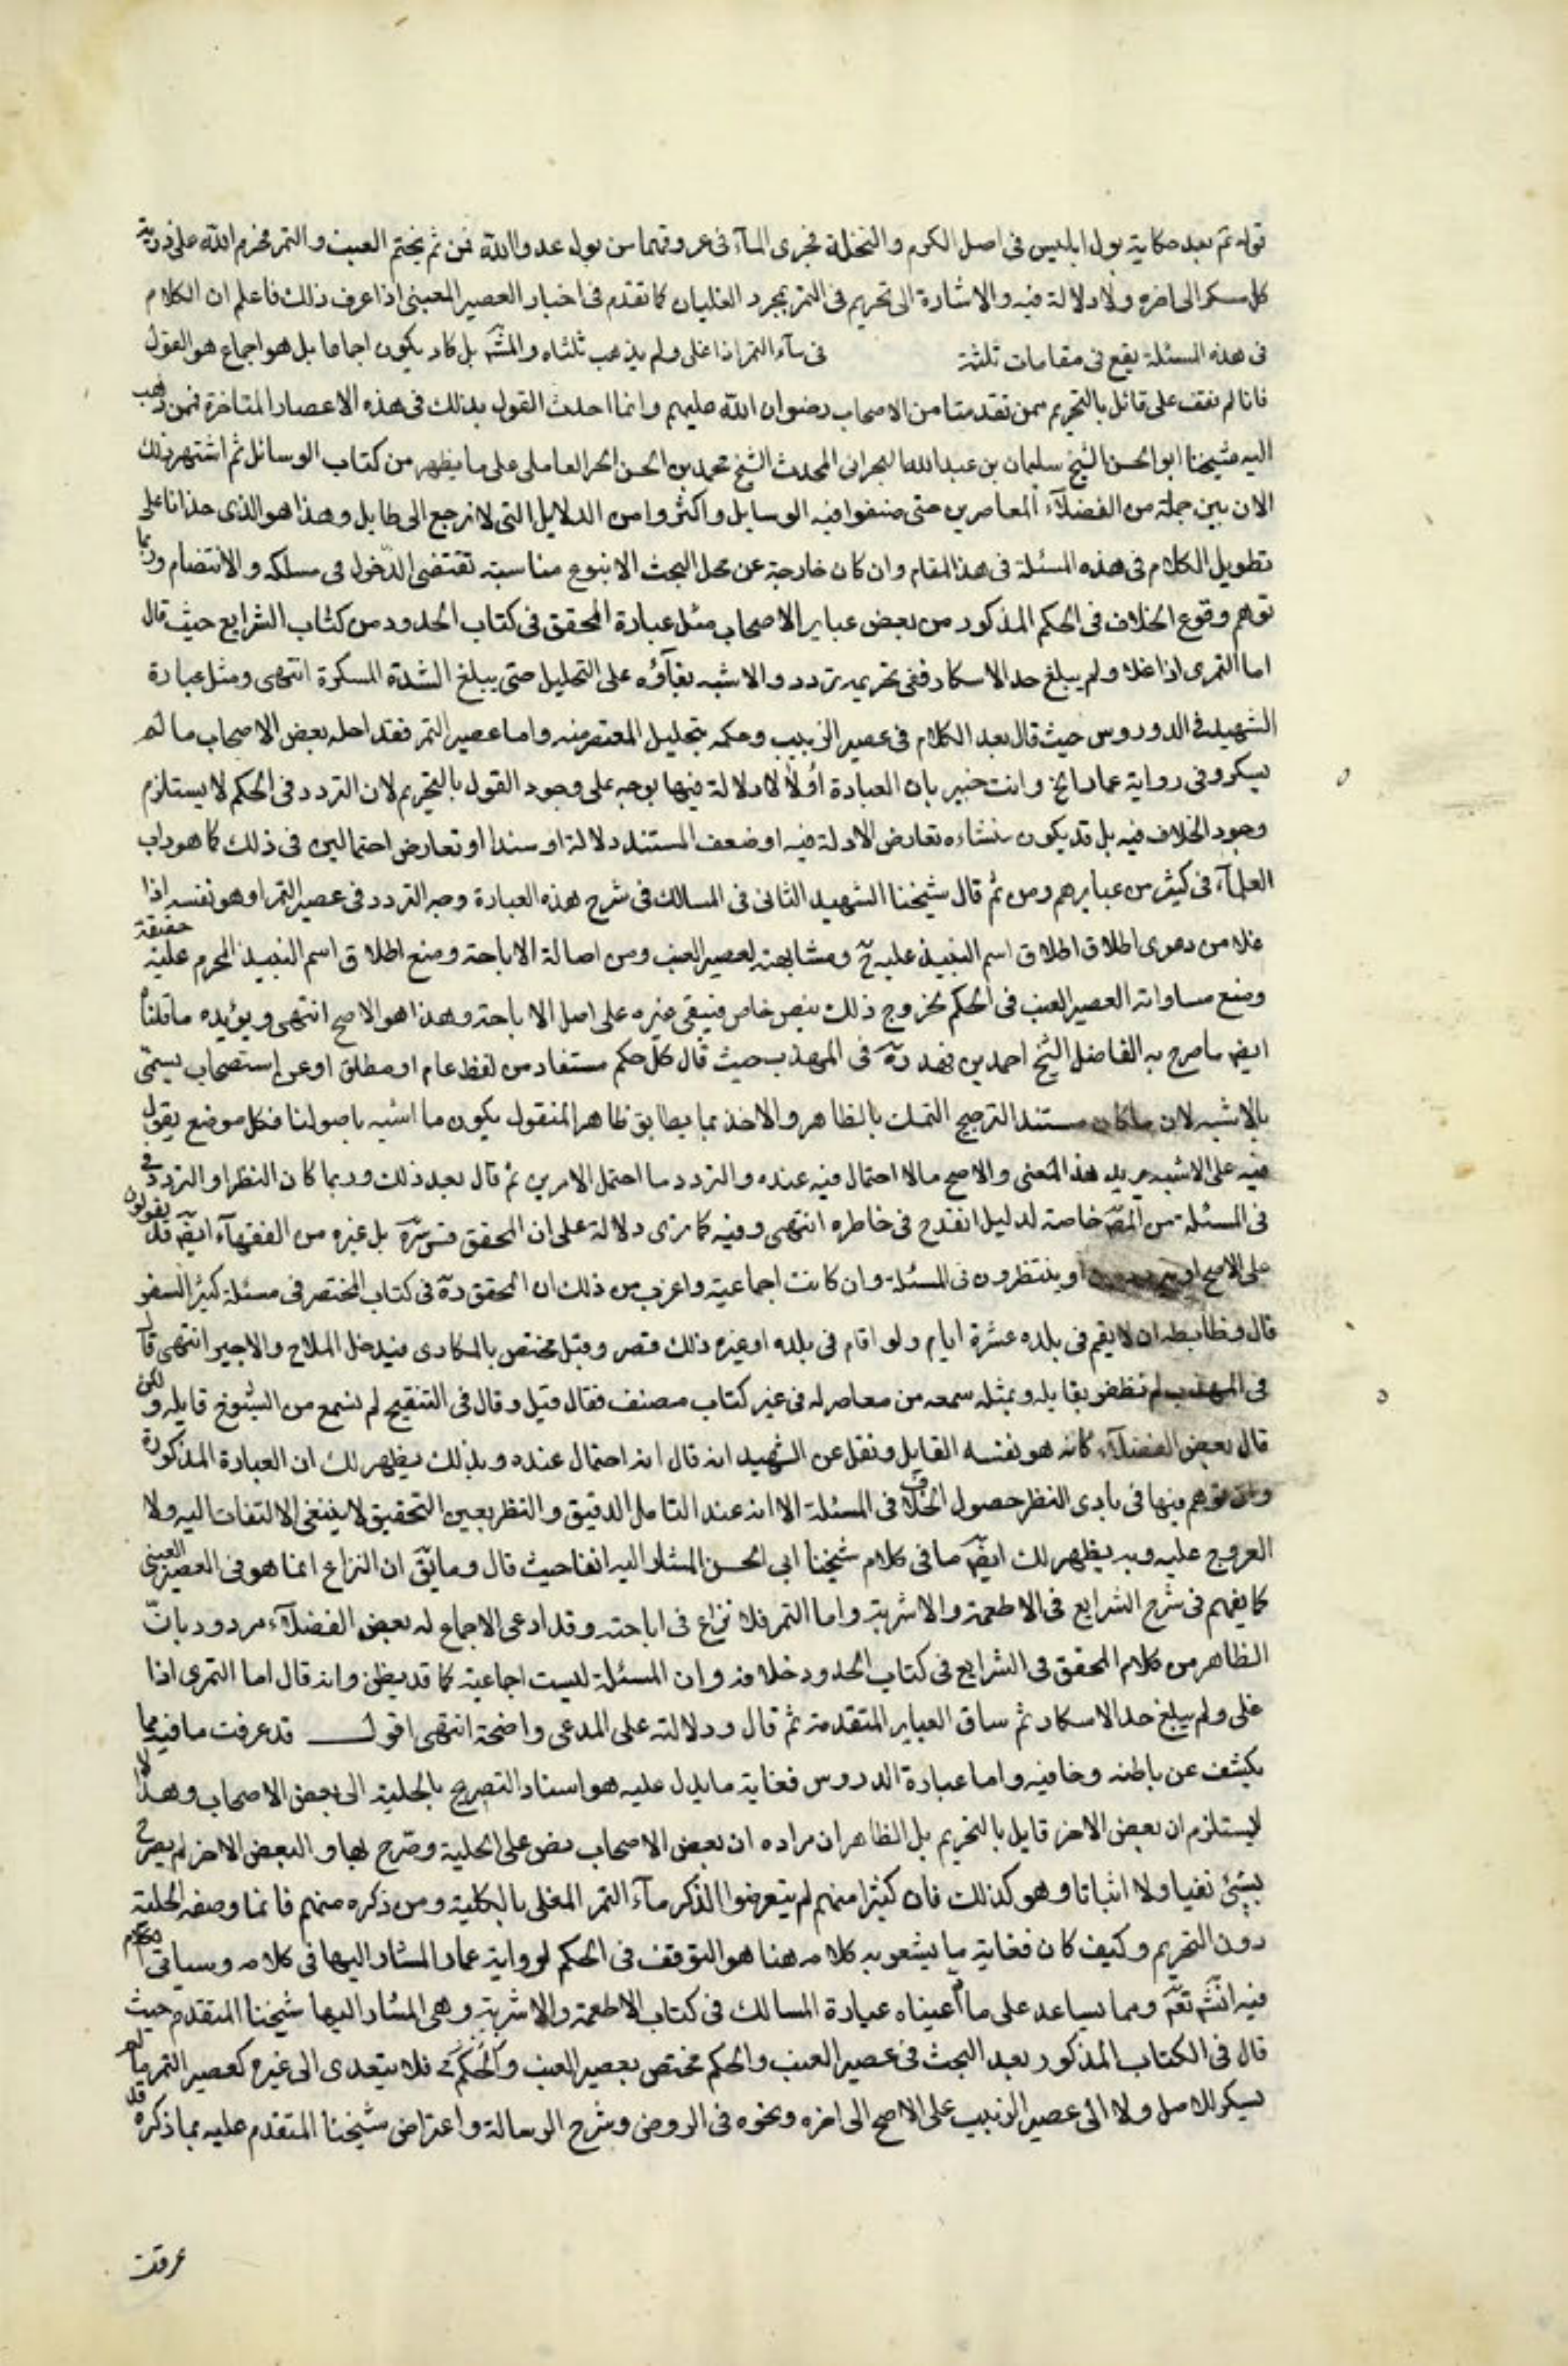 قوله ثم بعد حكاية بول ابليس فى اصل الكرم و النخلة فجرى المآء فى عروقهما من بول عدو الله فمن ثم يختم العنب و التمر فحرم الله على ذرية
كل مسكر الى اخره و لا دلالة فيه و الاشارة الى تحريم فى التمر بمجرد الغليان كما تقدم فى اخبار العصير العنبى اذا عرف ذلك فاعلم ان الكلام
فى هذه المسئلة يقع فى مقامات ثلثة فى مآء التمر اذا غلى و لم يذهب ثلثاه و المشهَ بل كاد يكون اجماعا بل هو اجماع هو القول
فانا لم نقف على قائل بالتحريم ممن تقدمنا من الاصحاب رضوان الله عليهم و انما احدث القول بذلك فى هذه الاعصار المتاخرة فممن ذهب
اليه شيخنا ابو الحسن الشيخ سليمان بن عبد الله البحرانى المحدث الشيخ محمد بن الحسن الحر العاملى على ما يظهر من كتاب الوسائل ثم اشتهر ذلك
الان بين جملة من الفضلآء المعاصرين حتى صنفوا فيه الوسايل و اكثروا من الدلايل التى لا ترجع الى طايل و هذا هو الذى حدانا على
تطويل الكلام فى هذه المسئلة فى هذا المقام و ان كان خارجة عن محل البحث الا بنوع مناسبته تقتضى الدخول فى مسلكه و الانتضام و ربما
توهم وقوع الخلاف فى الحكم المذكور من بعض عباير الاصحاب مثل عبارة المحقق فى كتاب الحدود من كتاب الشرايع حيث قال
اما التمرى اذا غلا و لم يبلغ حد الاسكار ففى تحريمه تردد و الاشبه بقآؤه على التحليل حتى يبلغ الشدة المسكرة انتهى و مثل عبارة
الشهيد فى الدوروس حيث قال بعد الكلام فى عصير الزبيب و حكمه بتحليل المعتصر منه و اما عصير التمر فقد احله بعض الاصحاب ما لم
يسكر و فى رواية عمار الخ و انت خبير بان العبادة أولا لا دلالة فيها بوجه على وجود القول بالتحريم لان التردد فى الحكم لا يستلزم
وجود الخلاف فيه بل قد يكون منشاءه تعارض الادلة فيه او ضعف المستند دلالة او سندا او تعارض احتمالين فى ذلك كما هو داب
العلمآء فى كثير من عبايرهم و من ثم قال شيخنا الشهيد الثانى فى المسالك فى شرح هذه العبارة وجه التردد فى عصير التمر او هو نفسه اذا
غلا من دعوى اطلاق اطلاق اسم النبيذ عليه حَ و مشابهته لعصير العنب و من اصالة الاباحة و منع اطلاق اسم النبيذ المحرم عليه حقيقة
و منع مساواته العصير العنب فى الحكم لخروج ذلك بنص خاص فيبقى غيره على اصل الاباحة و هذا هو الاصح انتهى و يؤيده ما قلناه
ايضا ما صرح به الفاضل الشيخ احمد بن فهد رهَ فى المهذب حيث قال كل حكم مستفاد من لفظ عام او مطلق او عن إستصحاب يسمى
بالاشبه لان ماكان مستند الترجيح التمسك بالظاهر و الاخذ بما يطابق ظاهر المنقول يكون ما اشبه باصولنا فكل موضع يقول
فيه على الاشبه يريد هذا المعنى و الاصح مالا احتمال فيه عنده و التردد ما احتمل الامرين ثم قال بعد ذلك و ربما كان النظر او التردد فى
فى المسئلة من المصَ خاصة لدليل انقدح فى خاطره انتهى و فيه كما ترى دلالة على ان المحقق قس سرهَ بل غيره من الفقهآء ايضَ قد يقولون
على الاصح او يترددون او ينتظرون فى المسئلة و ان كانت اجماعية و اغرب من ذلك ان المحقق رهَ فى كتاب المختصر فى مسئلة كثير السفر
قال و ظابطه ان لا يقيم فى بلده عشرة ايام و لو اقام فى بلده او غيره ذلك قصر و قيل مختص بالمكارى فيدخل الملاح و الاجير انتهى قال
فى المهذب لم نظفر بقايله و بمثله سمعه من معاصر له فى غير كتاب مصنف فقال قيل و قال فى التنقيح لم نسمع من الشيوخ قايله و لكن
قال بعض الفضلآء كانه هو نفسه القايل و نقل عن الشهيد انه قال انه احتمال عنده و بذلك يظهر لك ان العبارة المذكورة
و ان توهم منها فى بادى النظر حصول الخلاف فى المسئلة الا انه عند التامل الدقيق و النظر بعين التحقيق لا ينبغى الالتفات اليه و لا
العروج عليه و به يظهر لك ايضَ ما فى كلام شيخنا ابى الحسن المشار اليه انفا حيث قال و ما يقَ ان النزاع انما هو فى العصير العنبى
كما يفهم فى شرح الشرايع فى الاطعمة و الاشربة و اما التمر فلا نزاع فى اباحته و قد ادعى الاجماع له بعض الفضلآء مردود بانّ
الظاهر من كلام المحقق فى الشرايع فى كتاب الحدود خلافه و ان المسئلة ليست اجماعية كما قد يظن و انه قال اما التمرى اذا
غلى و لم يبلغ حد الاسكار ثم ساق العباير المتقدمة ثم قال و دلالته على المدعى واضحة انتهى اقول قد عرفت ما فيه مما
يكشف عن باطنه و خافيه و اما عبارة الدروس فغاية ما يدل عليه هو اسناد التصريح بالحلية الى بعض الاصحاب و هذا لا
ليستلزم ان بعض الاخر قايل بالتحريم بل الظاهر ان مراده ان بعض الاصحاب نص على الحلية و صرح بها و البعض الاخر لم يصرح
بشئ نفيا و لا اثباتا و هو كذلك فان كثيرا منهم لم يتعرضوا لذكر مآء التمر المغلى بالكلية و من ذكره منهم فانما وصفه الحلية
دون التحريم و كيف كان فغاية ما يشعر به كلامه هنا هو التوقف فى الحكم لرواية عمار المشار اليها فى كلامه و سياتى الكلام
فيه انشَ تعَ و مما يساعد على ما أدعيناه عبارة المسالك فى كتاب الاطعمة و الاشربة و هى المشار اليها شيخنا المتقدم حيث
قال فى الكتاب المذكور بعد البحث فى عصير العنب و الحكم مختص بعصير العنب فلا يتعدى الى غيره كعصير التمر ما لم
يسكر للاصل و لا الى عصير الزبيب على الاصح الى اخره و نحوه فى الروض و شرح الرسالة و اعتراض شيخنا المتقدم عليه بما ذكره قد
عرفت